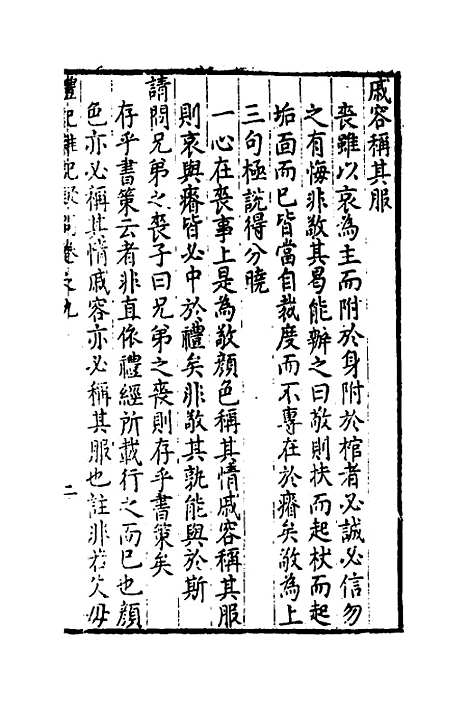 戚容稱其服
喪雖以哀為主而附於身附於棺者必誠必信勿
之有悔非敬其曷能辦之曰敬則扶而起杖而起
垢面而已皆當自裁度而不專在於瘠矣敬為上
三句極說得分曉
一心在喪事上是為敬顏色稱其情戚容稱其服
則哀與瘠皆必中於禮矣非敬其孰能與於斯
請問兄弟之喪子曰兄弟之喪則存乎書策矣
存乎書策云者非直依禮經所載行之而已也顏
色亦必稱其情戚容亦必稱其服也註非若父母
禮記雜記 卷之九 二